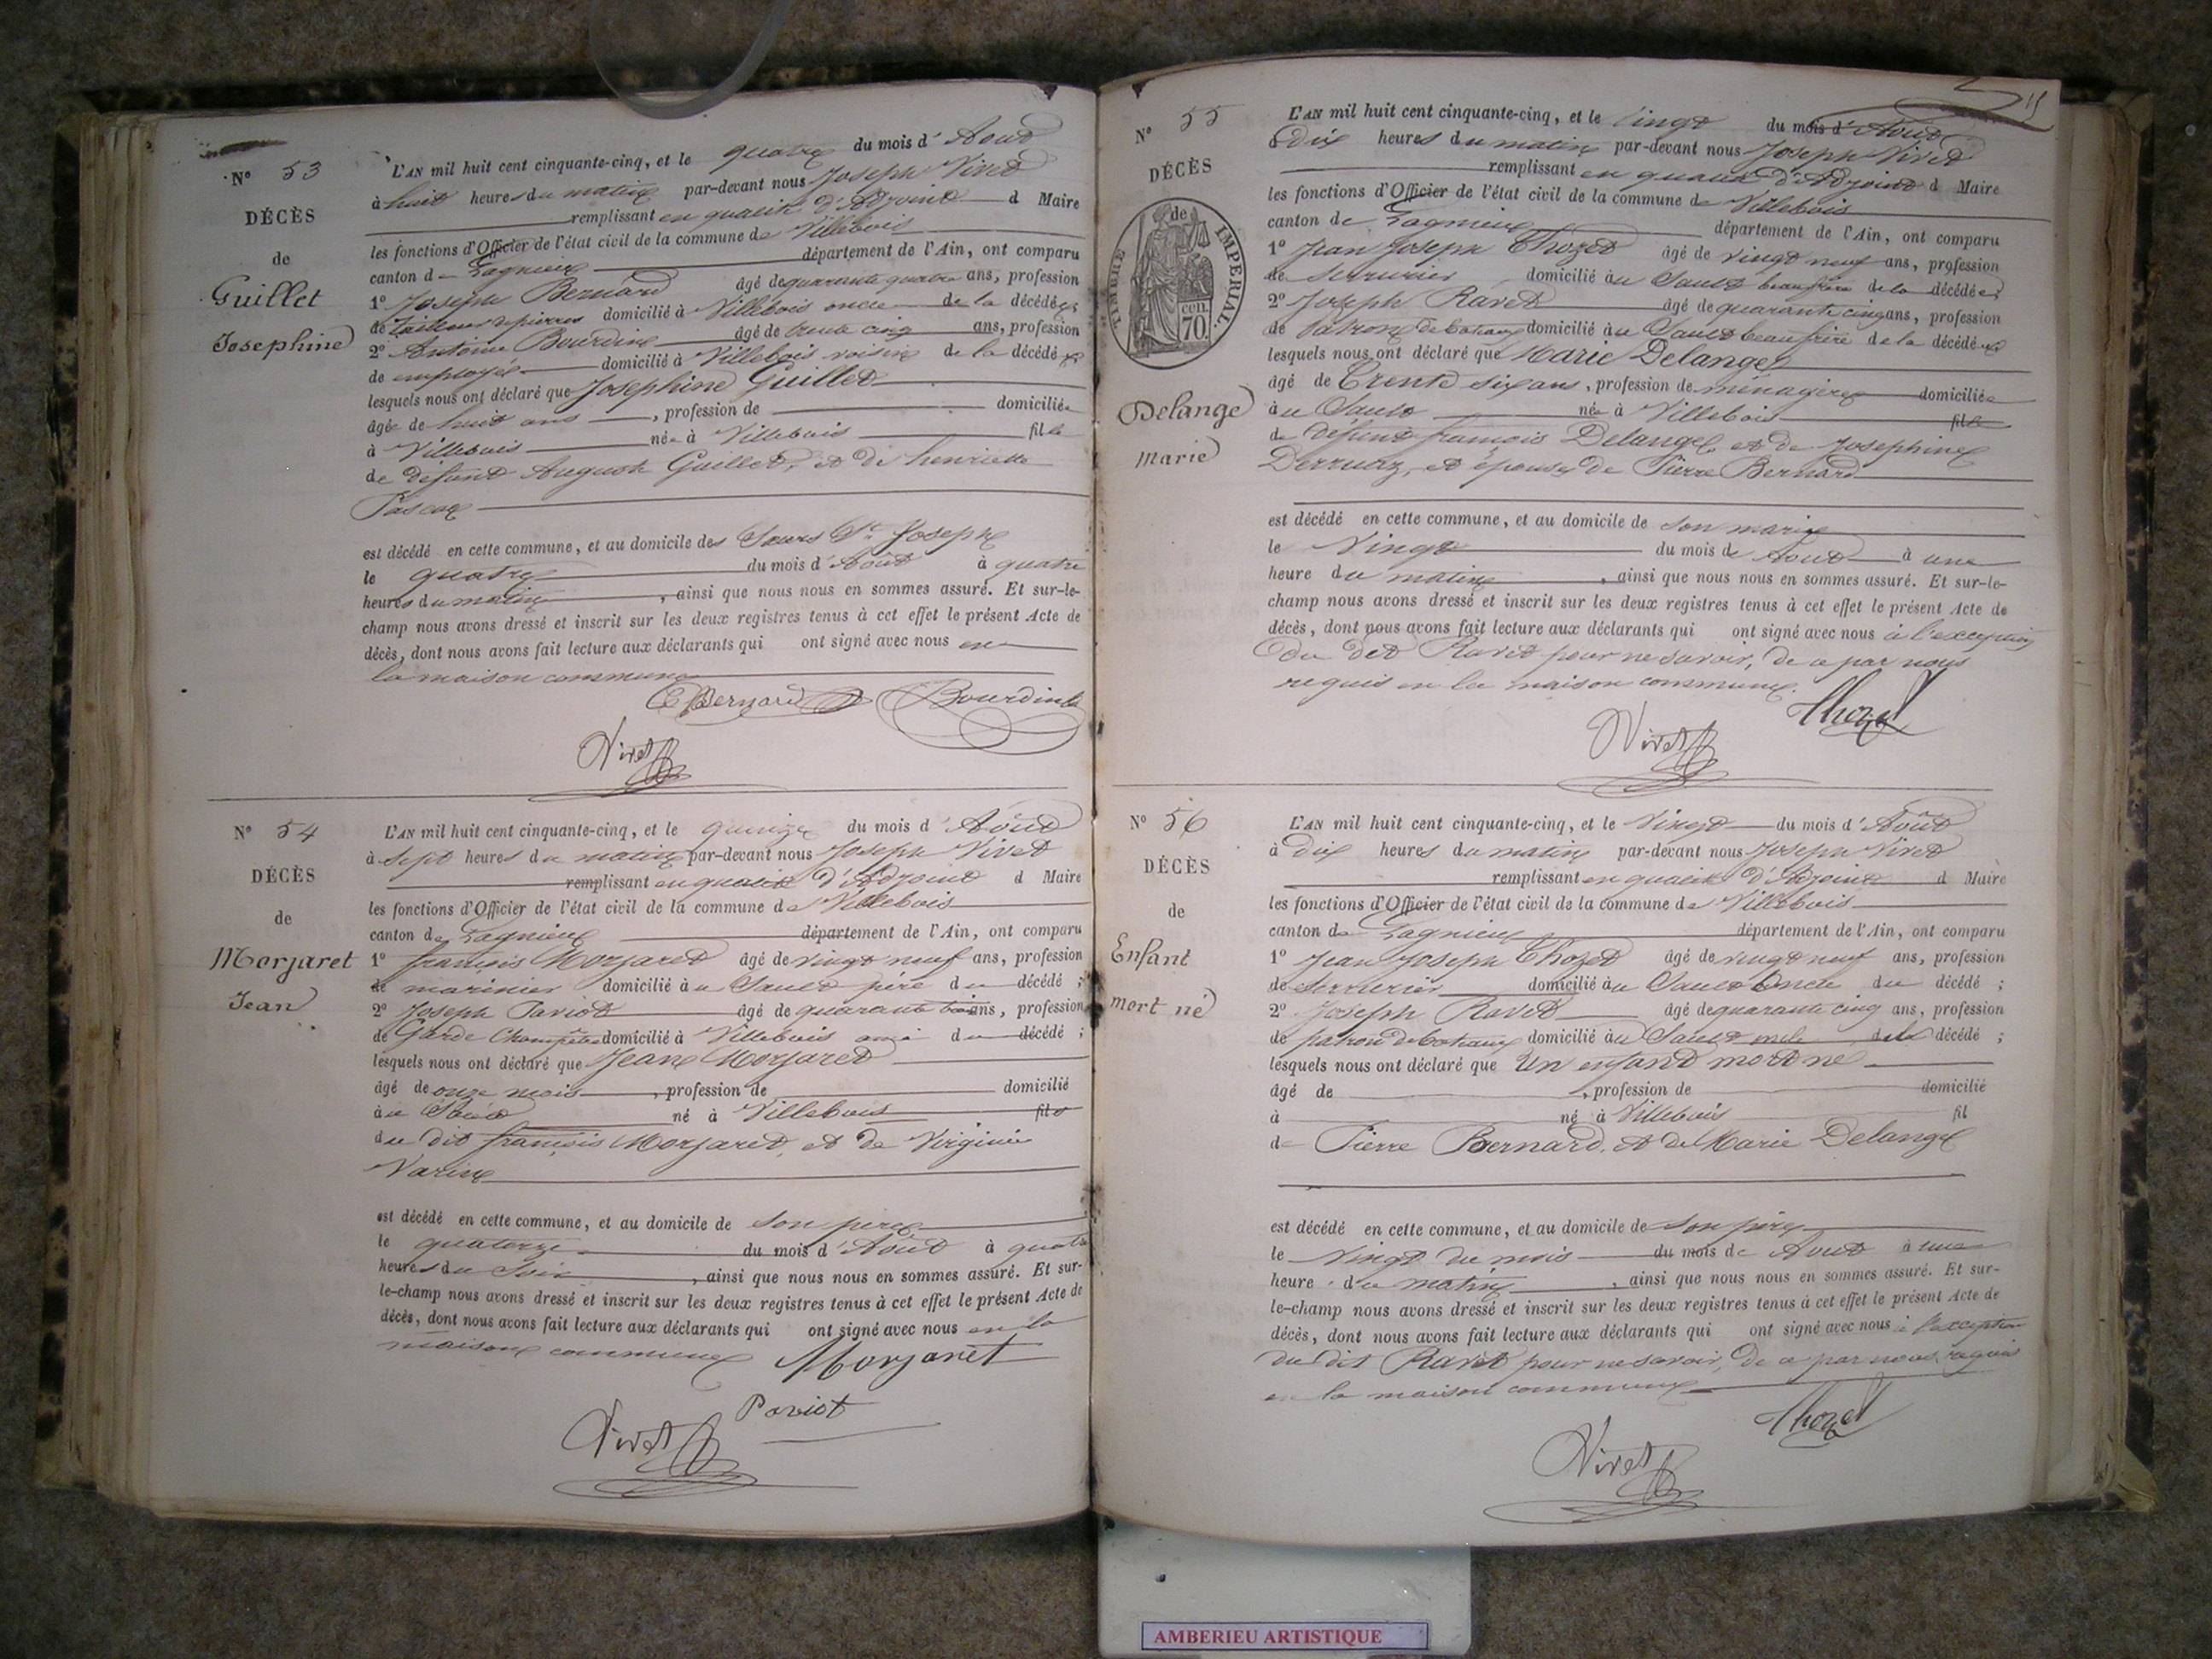 N° 53
DÉCÈS
de
Guillet
Josephine
L'AN mil huit cent cinquante-cinq, et le quatre du mois d'Aout
à huit heures du matin par-devant nous Joseph Vivet
remplissant en qualité d'Adjoint d Maire
les fonctions d'Officier de l'état civil de la commune de Villebois
canton de Lagnieu département de l'Ain, ont comparu
1° Joseph Bernard âgé de quarante quatre ans, profession
de Tailleur de pierres domicilié à Villebois oncle de la décédée;
2° Antoine Bourdin âgé de trente cinq ans, profession
de employé domicilié à Villebois voisin de la décédée;
lesquels nous ont déclaré que Josephine Guillet
âgée de huit ans, profession de domiciliée
à Villebois née à Villebois fille
de défunt Auguste Guillet, et de henriette
Pascal
est décédé en cette commune, et au domicile des Sœurs St Joseph
le quatre du mois d'Août à quatre
heures du matin, ainsi que nous nous en sommes assuré. Et sur-le-
champ nous avons dressé et inscrit sur les deux registres tenus à cet effet le présent Acte de
décès, dont nous avons fait lecture aux déclarants qui ont signé avec nous en
la maison commune
Bernard Bourdin
Vivet
N° 54
DÉCÈS
de
Morjaret
Jean
L'AN mil huit cent cinquante-cinq, et le quinze du mois d'Août
à sept heures du matin par-devant nous Joseph Vivet
remplissant en qualité d'Adjoint d Maire
les fonctions d'Officier de l'état civil de la commune de Villebois
canton de Lagnieu département de l'Ain, ont comparu
1° françois Morjaret âgé de vingt neuf ans, profession
de marinier domicilié au Sault père du décédé;
2° Joseph Paviot âgé de quarante trois ans, profession
de Garde Champêtre domicilié à Villebois ami du décédé;
lesquels nous ont déclaré que Jean Morjaret
âgé de onze mois, profession de domicilié
au Sault né à Villebois fils
du dit françois Morjaret, et de Virginie
Varin
est décédé en cette commune, et au domicile de son père
le quatorze du mois d'Août à quatre
heures du Soir, ainsi que nous nous en sommes assuré. Et sur-
le-champ nous avons dressé et inscrit sur les deux registres tenus à cet effet le présent Acte de
décès, dont nous avons fait lecture aux déclarants qui ont signé avec nous en la
maison commune Morjaret
Paviot
Vivet
15
N° 55
DÉCÈS
de
TIMBRE IMPERIAL.
cen.
70.
Delange
Marie
L'AN mil huit cent cinquante-cinq, et le vingt du mois d'Août
à dix heures du matin par-devant nous Joseph Vivet
remplissant en qualité d'Adjoint d Maire
les fonctions d'Officier de l'état civil de la commune de Villebois
canton de Lagnieu département de l'Ain, ont comparu
1° Jean Joseph Thozet âgé de vingt neuf ans, profession
de serrurier domicilié au Sault beau frère de la décédée;
2° Joseph Ravet âgé de quarante cinq ans, profession
de Patron de bateaux domicilié au Sault beau frère de la décédée
lesquels nous ont déclaré que Marie Delange
âgé de Trente six ans, profession de ménagère domiciliée
au Sault née à Villebois fille
de défunt françois Delange et de Josephine
Derruaz, et épouse de Pierre Bernard
est décédé en cette commune, et au domicile de son mari
le Vingt du mois de Aout à une
heure du matin, ainsi que nous nous en sommes assuré. Et sur-le-
champ nous avons dressé et inscrit sur les deux registres tenus à cet effet le présent Acte de
décès, dont nous avons fait lecture aux déclarants qui ont signé avec nous à l'exception
du dit Ravet pour ne savoir, de ce par nous
requis en la maison commune.
Thozet
Vivet
N° 56
DÉCÈS
de
Enfant
mort né
L'AN mil huit cent cinquante-cinq, et le Vingt du mois d'Août
à dix heures du matin par-devant nous Joseph Vivet
remplissant en qualité d'Adjoint d Maire
les fonctions d'Officier de l'état civil de la commune de Villebois
canton de Lagnieu département de l'Ain, ont comparu
1° Jean Joseph Thozet âgé de vingt neuf ans, profession
de Serrurier domicilié au Sault Oncle du décédé;
2° Joseph Ravet âgé de quarante cinq ans, profession
de patron de bateaux domicilié au Sault oncle du décédé;
lesquels nous ont déclaré que Un enfant mort né
âgé de, profession de domicilié
à né à Villebois fil
de Pierre Bernard, et de Marie Delange
est décédé en cette commune, et au domicile de son père
le Vingt du mois du mois de Aout à une
heure du matin, ainsi que nous nous en sommes assuré. Et sur-
le-champ nous avons dressé et inscrit sur les deux registres tenus à cet effet le présent Acte de
décès, dont nous avons fait lecture aux déclarants qui ont signé avec nous à l'exception
du dit Ravet pour ne savoir, de ce par nous requis
en la maison commune
Thozet
Vivet
AMBERIEU ARTISTIQUE